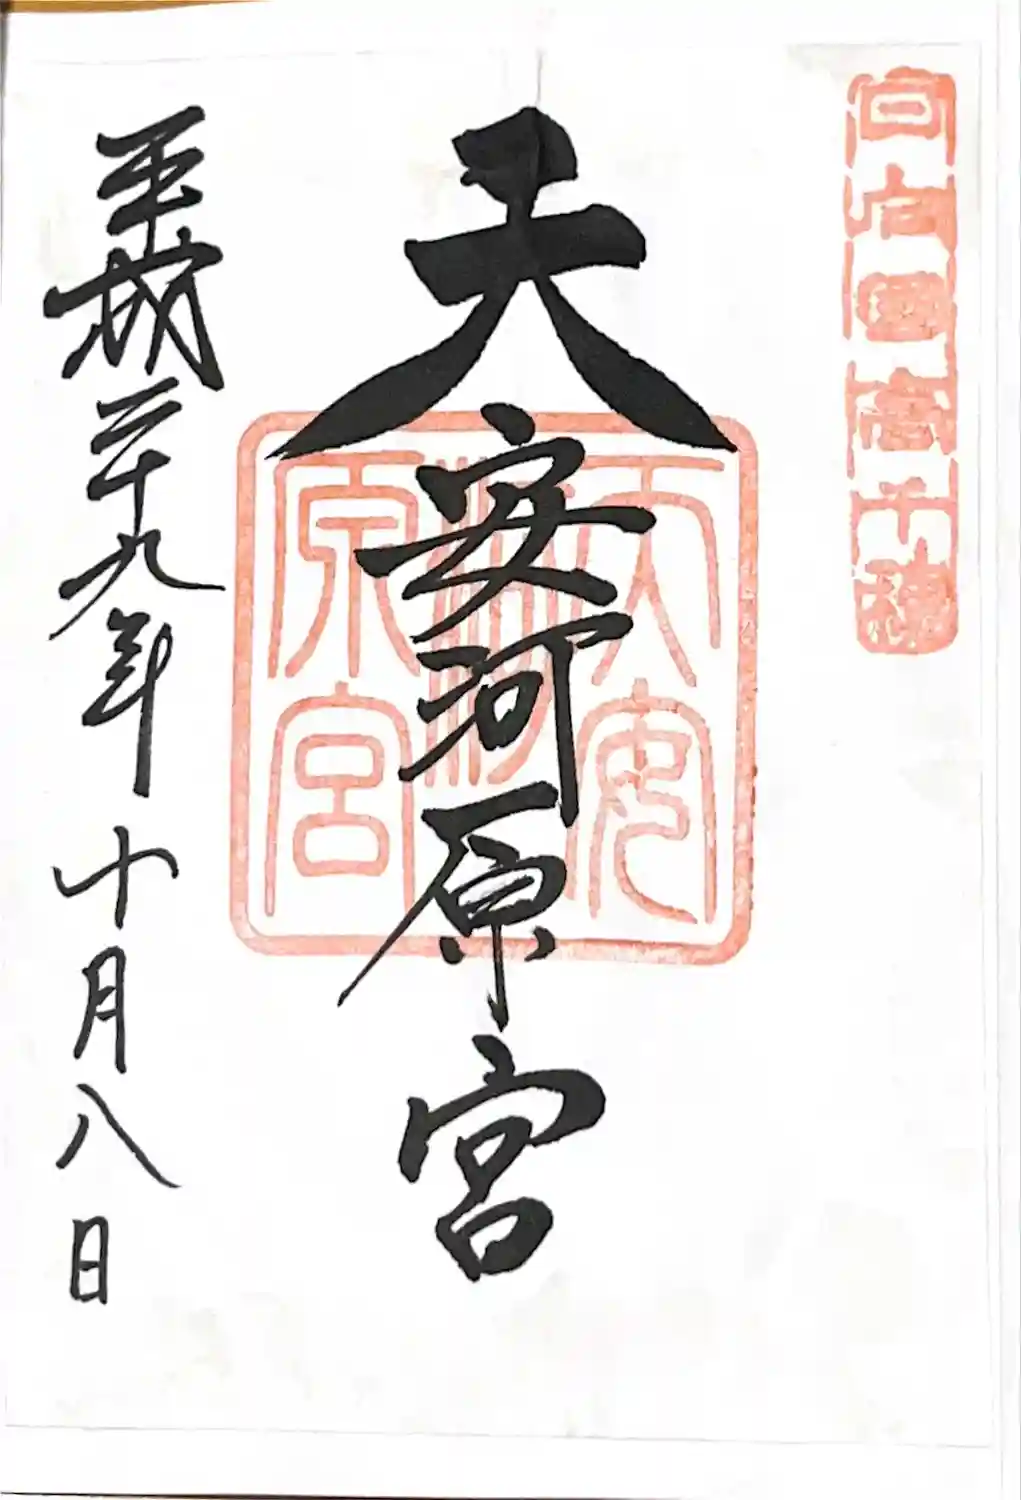 向向国高千穂
天安河原宮
天安
河
原宮
平成二十九年十月八日